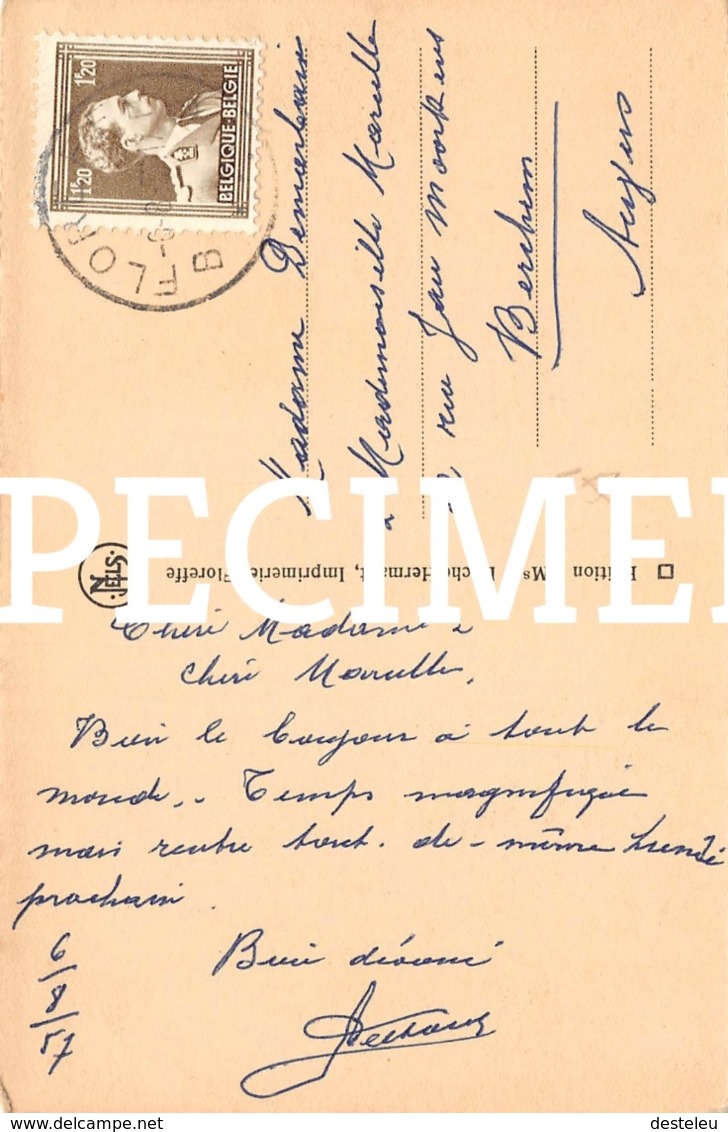 1F20
1F20
BELGIQUE·BELGIE
FLOR
B
-6-8
Madame
à Mademoiselle Marcelle
rue Jan Moorkens
Berchem
Anvers
SPECIMEN
NELS
Edition Ms Imprimerie Floreffe
Chère Madame &
chère Marcelle,
Bien le bonjour à tout le
monde. Temps magnifique
mais rentre tout de même lundi
prochain.
Bien dévoué
6/8/57
www.delcampe.net
desteleu